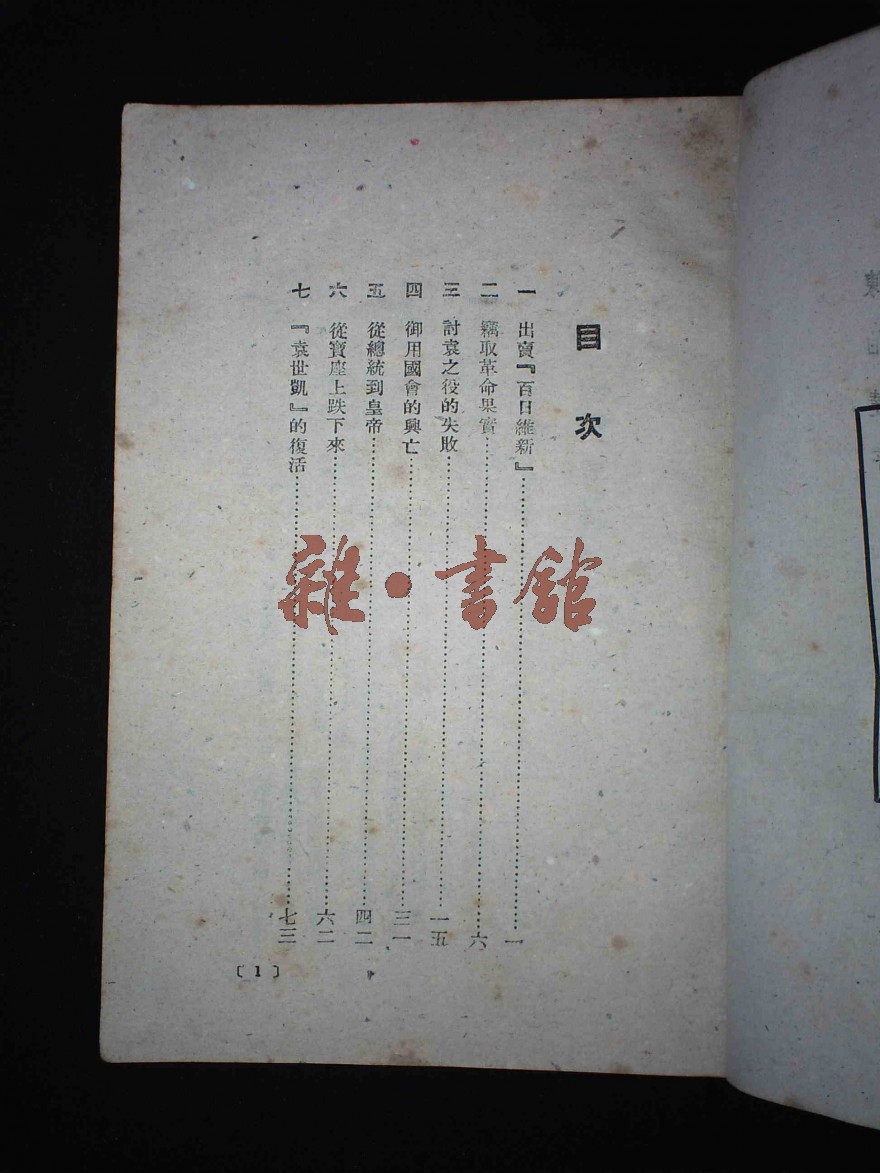 目次
一 出賣『百日維新』……一
二 竊取革命果實……六
三 討袁之役的失敗……一五
四 御用國會的興亡……三一
五 從總統到皇帝……四二
六 從寶座上跌下來……六二
七 『袁世凱』的復活……七三
〔1〕
雜·書館